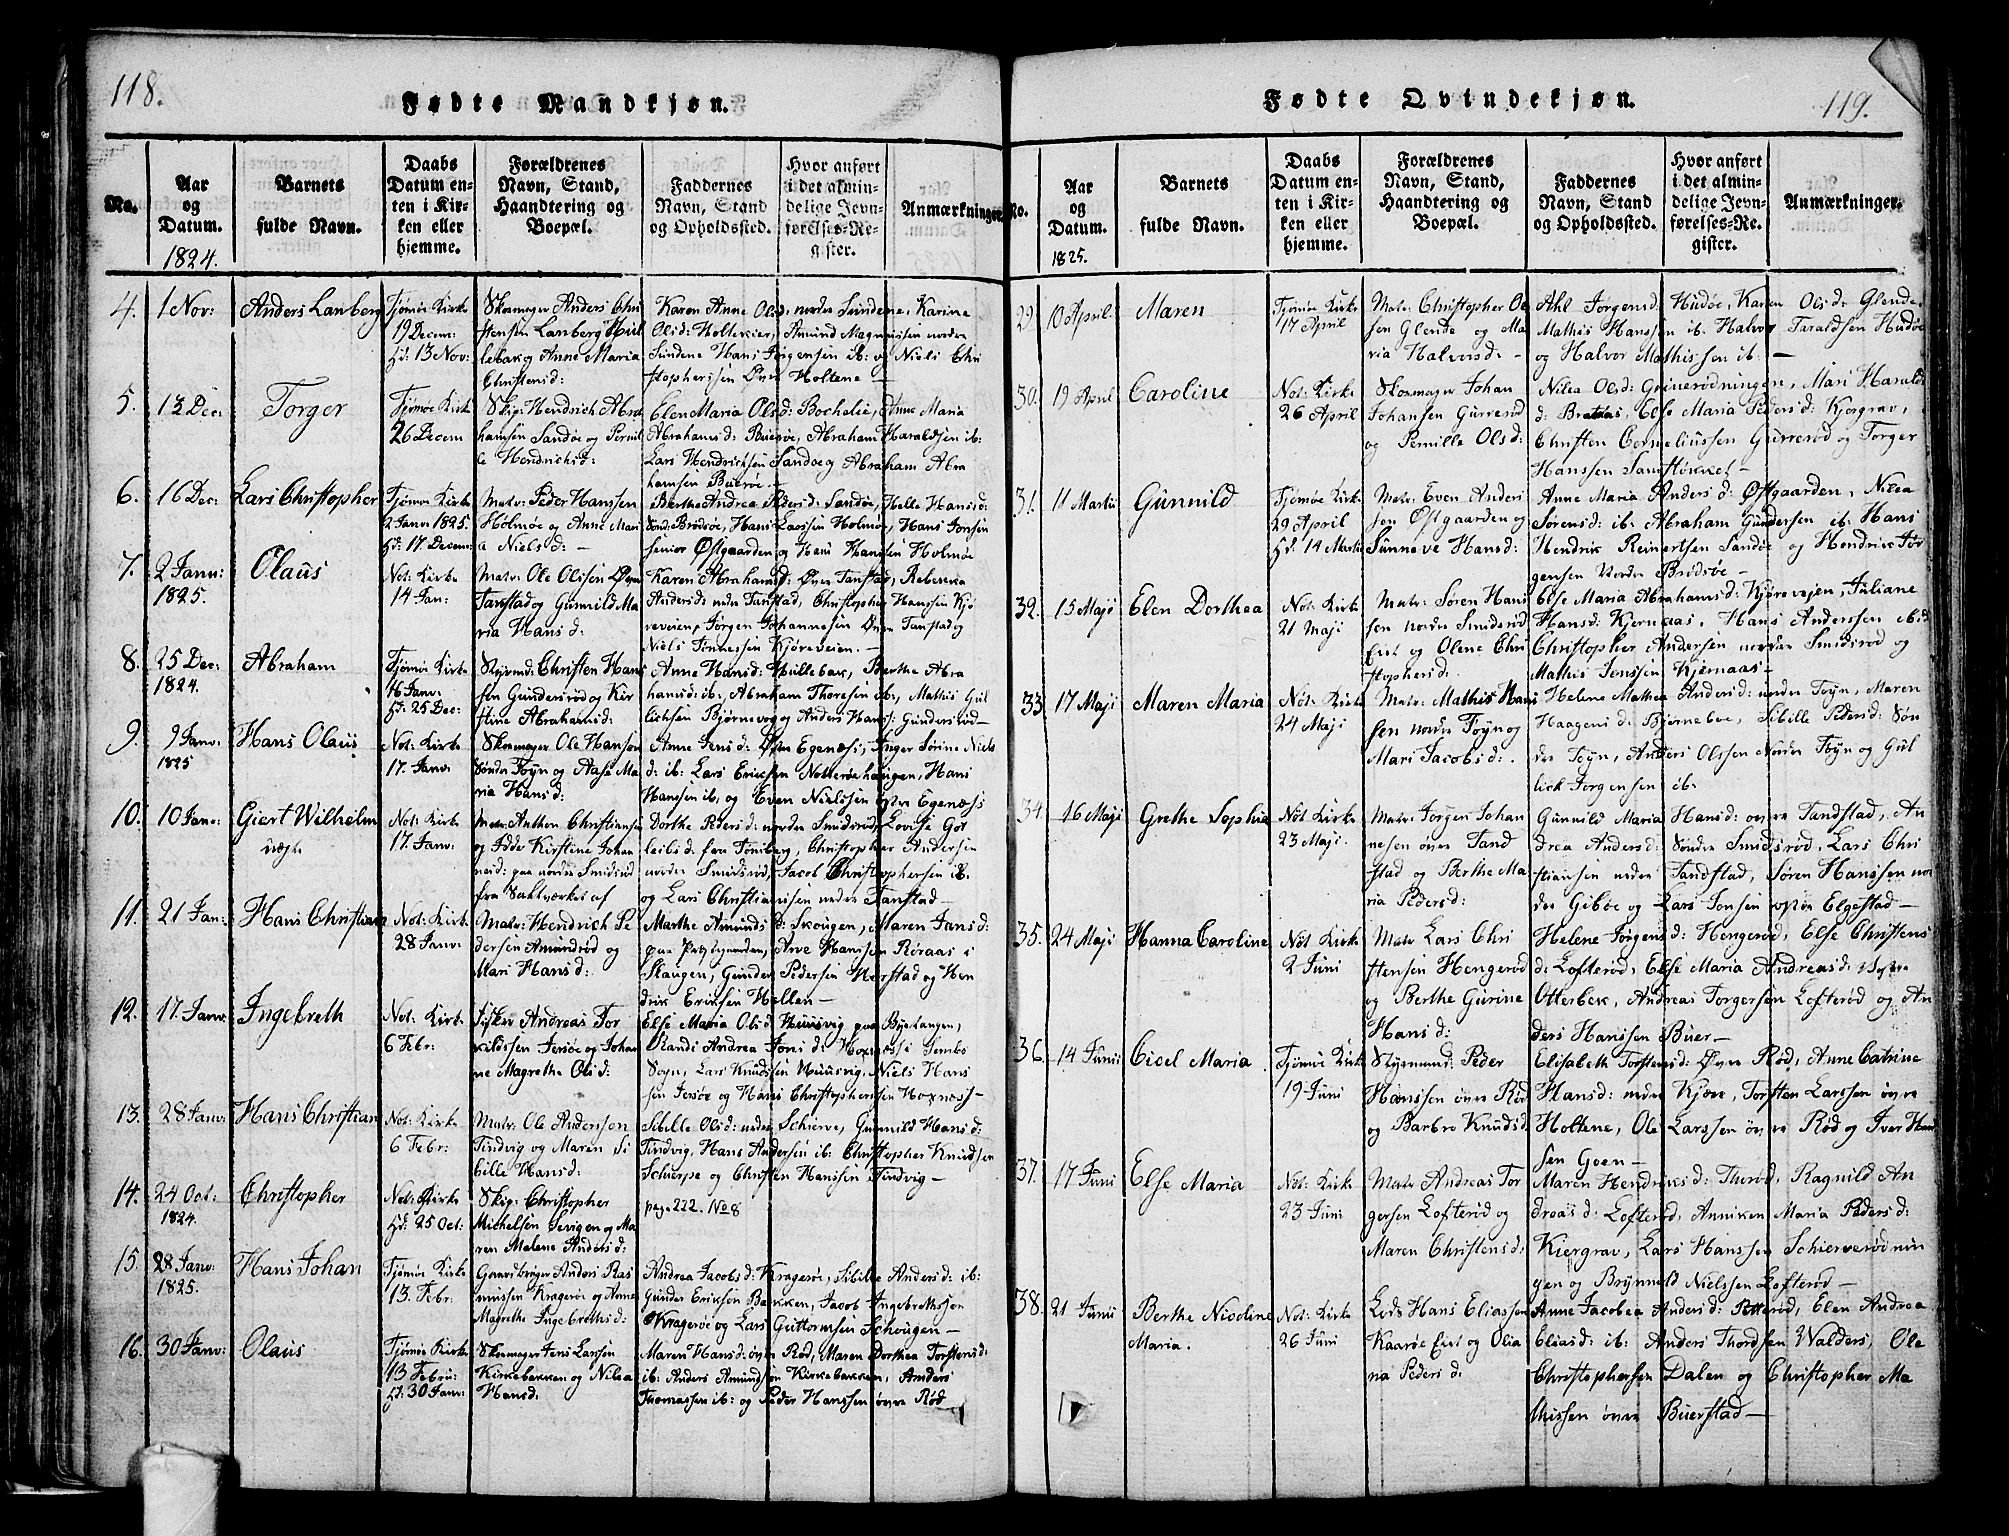 118.
Fødte Mandkjøn.
No.
Aar
og
Datum.
1824.
Barnets
fulde Navn.
Daabs
Datum en-
ten i Kir-
ken eller
hjemme.
Forældrenes
Navn, Stand,
Haandtering og
Boepæl.
Faddernes
Navn, Stand
og Opholdssted.
Hvor anført
i det almin-
delige Jevn-
førelses-Re-
gister.
Anmærkninger.
4. 1 Nov: Anders Lanberg
Tjømøe Kirke
19 Decem:
hd: 13 Nov:
Skomager Anders Chri
stensen Lanberg
og Anne Maria
Christensd:
Karen Anne Olsd: nordre Sundene, Karine
Olsd: Holtekier, Amund Magnussen nordre
Sundene Hans Jørgensen ib: og Niels Chri
stophersen Øvre Holtene —
5. 13 Dec: Torger
Tjømøe Kirke
26 Decem
Skip: Hendrich Abra
hamsen Sandøe og Pernil
le Hendrichsd:
Elen Maria Olsd: Bochelie, Anne Maria
Abrahamsd: Buerøe, Abraham Haraldsen ib:
Lars Hendrichsen Sandøe og Abraham Abra
hamsen Buerøe —
6. 16 Dec: Lars Christopher
Tjømøe Kirke
2 Janv: 1825.
hd: 17 Decem:
Matr: Peder Hanssen
Holmøe og Anne Mari
a Nielsd: —
Berthe Andrea Pedersd: Sandøe, Helle Hansd:
Sønd: Brødsøe, Hans Larssen Holmøe, Hans Jonsen
senior Østgaarden og Hans Hanssen Holmøe
7. 2 Janv:
1825.
Olaus
Not: Kirke
14 Jan:
Matr: Ole Olssen Øvre
Tanstad og Gunnild Ma
ria Hansd:
Karen Abrahamsd: Øvre Tanstad, Rebecka
Andersd: nedre Tanstad, Christopher Hanssen Kjø
reveien, Jørgen Johannesen Øvre Tanstad og
Niels Tønnessen Kjøreveien. —
8. 25 Dec:
1824.
Abraham
Tjømøe Kirke
16 Janv:
hd: 25 Dec:
Styrmd: Christen Hans
sen Gundersrød og Kir
stine Abrahamsd:
Anne Hansd: Hullebak, Berthe Abra
hamsd: ib:, Abraham Thoresen ib:, Mathis Gul
lichsen Bjørnevog og Anders Hanss: Gundersrød —
9. 9 Janv:
1825
Hans Olaus
Not: Kirke
17. Janv:
Skomager Ole Hansen
Søndre Foyn og Aase Ma
ria Hansd:
Anne Jensd: Øvre Egenæss, Inger Sørine Niels
d: ib: Lars Eriksen Notterøehaugen, Hans
Hanssen ib: og Even Nielssen øvre Egenæss
10. 10 Janv: Giert Wilhelm
uægte
Not: Kirke
17. Janv:
Matr: Anthon Christiansen
og Idde Kirstine Johan
nesd: paa nordre Smidsrød
fra Saltværket af
Dorthe Pedersd: nordre Smidsrød, Lovise Got
leibsd: fra Tønsberg, Christopher Andersen
nordre Smidsrød, Jacob Christophersen ib.
og Lars Christianssen nedre Tanstad —
11. 21 Jan: Hans Christian
Not: Kirke
28 Janv:
Matr: Hendrich Pe
dersen Amundrød og
Mari Hansd:
Marthe Amunds d: Skougen, Maren Jansd:
paa Præstegaarden, Arve Hanssen Røraas i
Skougen, Gunder Pedersen Herstad og Hen
drik Eriksen Hellen —
12. 17. Janv: Ingebreth
Not: Kirk.
6 Febr:
Fisker Andreas Tor
kildssen Jersøe og Johan
ne Magrethe Olsd:
Else Maria Olsd Huusvig paa Byetangen,
Randi Andrea Jonsd: Hoxnæss i Sembs
Sogn, Lars Knudssen Huusvig, Niels Hans
sen Jersøe og Hans Christophersen Hoxnæss —
13. 28 Janv: Hans Christian
Not: Kirke
6 Febr:
Matr: Ole Andersen
Tindvig og Maren Si
bille Hansd:
Sibille Olsd: nedre Schierve, Gunnild Hansd:
Tindvig, Hans Andersen ib: Christopher Knudsen
Schierpe og Christen Hanssen Tindvig —
14. 24 Oct:
1824.
Christopher
Not: Kirke
hd: 25 Oct:
Skip: Christopher
Michelsen Sevigen og Ma
ren Malene Andersd:
pag. 222. No 8
15. 28 Janv:
1825.
Hans Johan
Tjømøe Kirke
13. Febr:
Gaardbruger Anders Ras
mussen Kragerøe og Anne
Magrethe Ingebrethsd:
Andrea Jacobsd: Kragerøe, Sibille Andersd: ib:
Gunder Eriksen Bakken, Jacob Ingebrethsen
Kragerøe og Lars Guttormsen Schougen —
16. 30 Janv: Olaus
Tjømøe Kirke
13 Febru:
hd: 30 Janv:
Skomager Jens Larsen
Kirkebakken og Nilea
Hansd:
Maren Hansd: øvre Rød, Maren Dorthea Torstensd:
ib: Anders Amundsen Kirkebakken, Anders
Thomassen ib: og Peder Hanssen øvre Rød
Fødte Qvindekjøn.
119.
No.
Aar
og
Datum.
1825.
Barnets
fulde Navn.
Daabs
Datum en-
ten i Kir-
ken eller
hjemme.
Forældrenes
Navn, Stand,
Haandtering og
Boepæl.
Faddernes
Navn, Stand
og Opholdssted.
Hvor anført
i det almin-
delige Jevn-
førelses-Re-
gister.
Anmærkninger.
29. 10 April Maren
Tjømøe Kirke
17 April
Matr: Christopher Ol
sen Glende og Ma
ria Halvorsd: —
Ahl Jørgensd: Hudøe, Karen Olsd: Glende,
Mathis Hanssen ib: Halvor Taraldsen Hudøe
og Halvor Mathissen ib: —
30. 19 April Caroline
Not: Kirke
26 April
Skomager Johan
Johansen Gurrerød
og Pernille Olsd:
Nilea Olsd: Grinerødningen, Mari Haralds
d: Brataas, Else Maria Pedersd: Kjørgrav,
Christen Corneliussen Gurrerød og Torger
Hanssen Samstøkket —
31. 11 Martii Gunnild
Tjømøe Kirke
29 April
hd: 14 Martii
Matr: Even Anders
sen Østgaarden og
Sunneve Hansd:
Anne Maria Andersd: Østgaarden, Nilea
Sørensd: ib: Abraham Gundersen ib: Hans
Hendrik Reinertsen Sandøe og Hendrik Jør
gensen Nordre Brødsøe —
32. 15 Maji Elen Dorthea
Not: Kirke
21 Maji
Matr: Søren Hans
sen nordre Smidsrød
Eiet og Olene Chri
stophersd:
Else Maria Abrahamsd: Kjøreveien, Juliane
Hansd: Kjernaas, Hans Anderssen ibid:
Christopher Andersen nordre Smidsrød og
Mathis Jenssen Kjernaas —
33. 17 Maji Maren Maria
Not: Kirke
24 Maji
Matr: Mathis Hans
sen nordre Foyn og
Mari Jacobsd:.
Helene Mathea Andersd: nordre Foyn, Maren
Haagensd: Bjørneboe, Sibille Pedersd: Søn
dre Foyn, Anders Olssen Nordre Foyn og Gul
lick Jørgensen ib:
34. 16 Maji Grethe Sophia
Not Kirke
23 Maji.
Matr: Jørgen Johan
nesen øvre Tand
stad og Berthe Ma
ria Pedersd:
Gunnild Maria Hansd: øvre Tandstad, An
drea Andersd: Søndre Smidsrød, Lars Chri
stiansen nedre Tandstad, Søren Hanssen nor
dre Gibøe og Lars Jonsen vestre Elgestad —
35. 24 Maji Hanna Caroline
Not Kirke
2 Juni
Matr Lars Chri
stensen Hengerød
og Berthe Gurine
Hansd:
Helene Jørgensd: Hengerød, Else Christens
d: Lofterød, Else Maria Andreasd: Vestre
Otterbek, Andreas Torgersen Lofterød og An
ders Hanssen Buer —
36. 14 Junii Cicel Maria
Tjømøe Kirke
19 Juni
Styrmand: Peder
Hanssen øvre Rød
og Barbro Knudsd
Elisabeth Torstensd: Øvre Rød, Anne Catrine
Hansd: nedre Kjøre, Torsten Larssen øvre
Holtene, Ole Larssen øvre Rød og Iver Hans
sen Goen —
37. 17 Juni Else Maria
Not: Kirke
23 Juni
Matr Andreas Tor
gersen Lofterød og
Maren Christensd:
Maren Hendriksd: Therød, Ragnild An
dreasd: Lofterød, Anniken Maria Pedersd:
Kiergrav, Lars Hanssen Schierverødnin
gen og Brynneld Nielssen Lofterød —
38. 21 Junii Berthe Nicoline
Maria.
Not: Kirke
26 Juni
Lods Hans Eliassen
Kaarøe Eiet og Olia
na Pedersd:
Anne Jacobea Andersd: Petterød, Elen Andrea
Eliasd: ib: Anders Thordsen Walders, Ole
Christophersen Dalen og Christopher Ma
thissen øvre Buerstad —